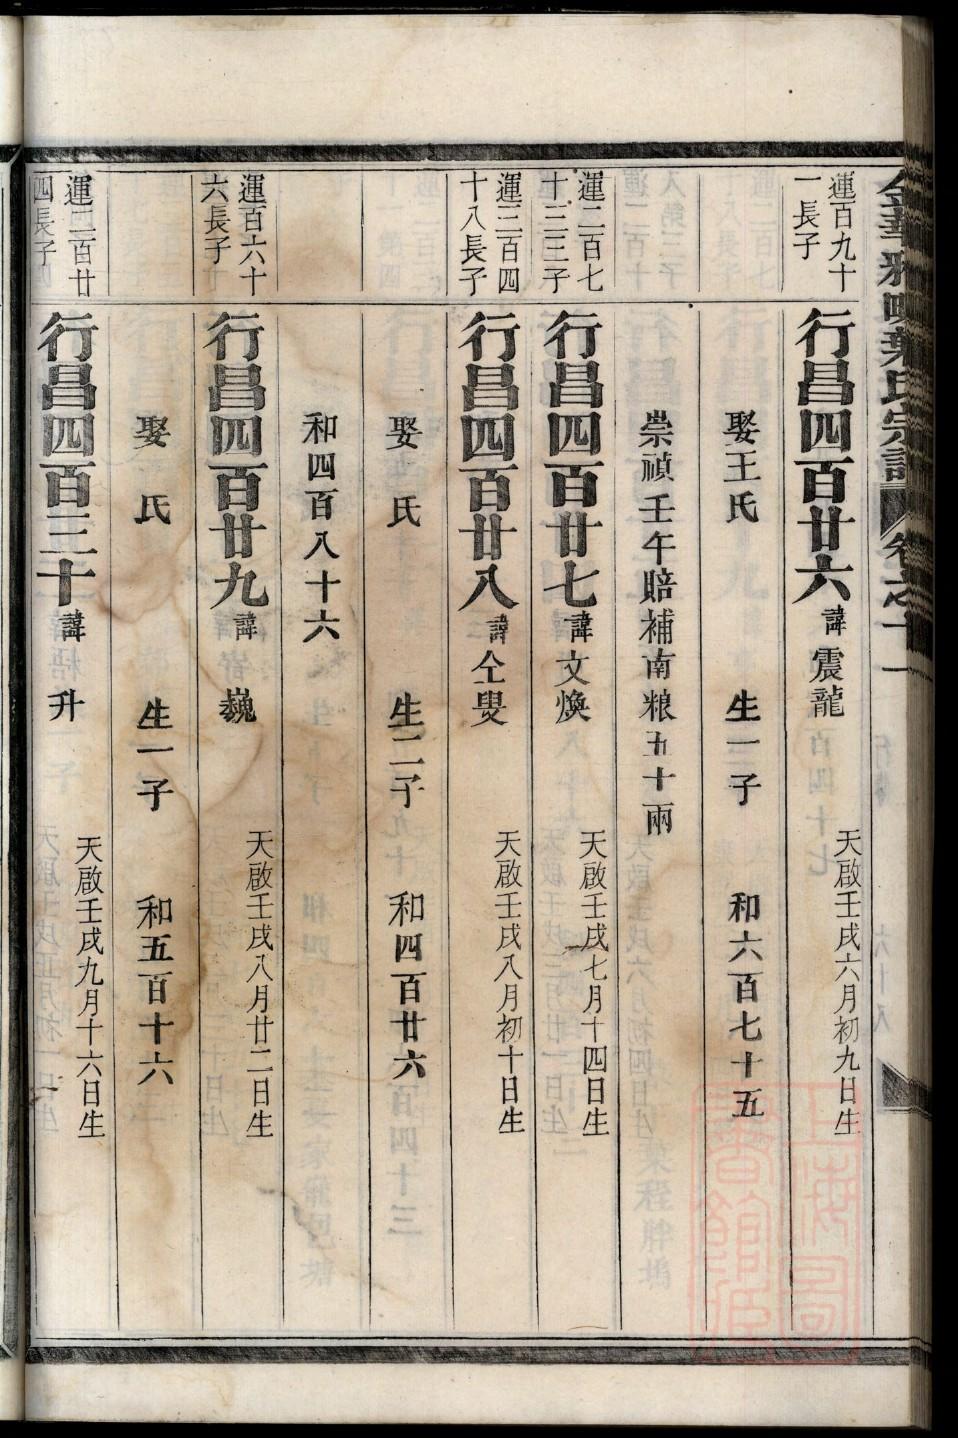 金華雅畈葉氏宗譜 卷之十一
運百九十
一長子
行昌四百廿六 諱震龍 天啟壬戌六月初九日生
娶王氏 生一子 和六百七十五
崇禎壬午賠補南粮五十兩
運二百七
十三三子
行昌四百廿七 諱文煥 天啟壬戌七月十四日生
運三百四
十八長子
行昌四百廿八 諱仝叟 天啟壬戌八月初十日生
娶 氏 生二子 和四百廿六
和四百八十六
運百六十
六長子
行昌四百廿九 諱巍 天啟壬戌八月廿二日生
娶 氏 生一子 和五百十六
運二百廿
四長子
行昌四百三十 諱升 天啟壬戌九月十六日生
上海圖書館藏